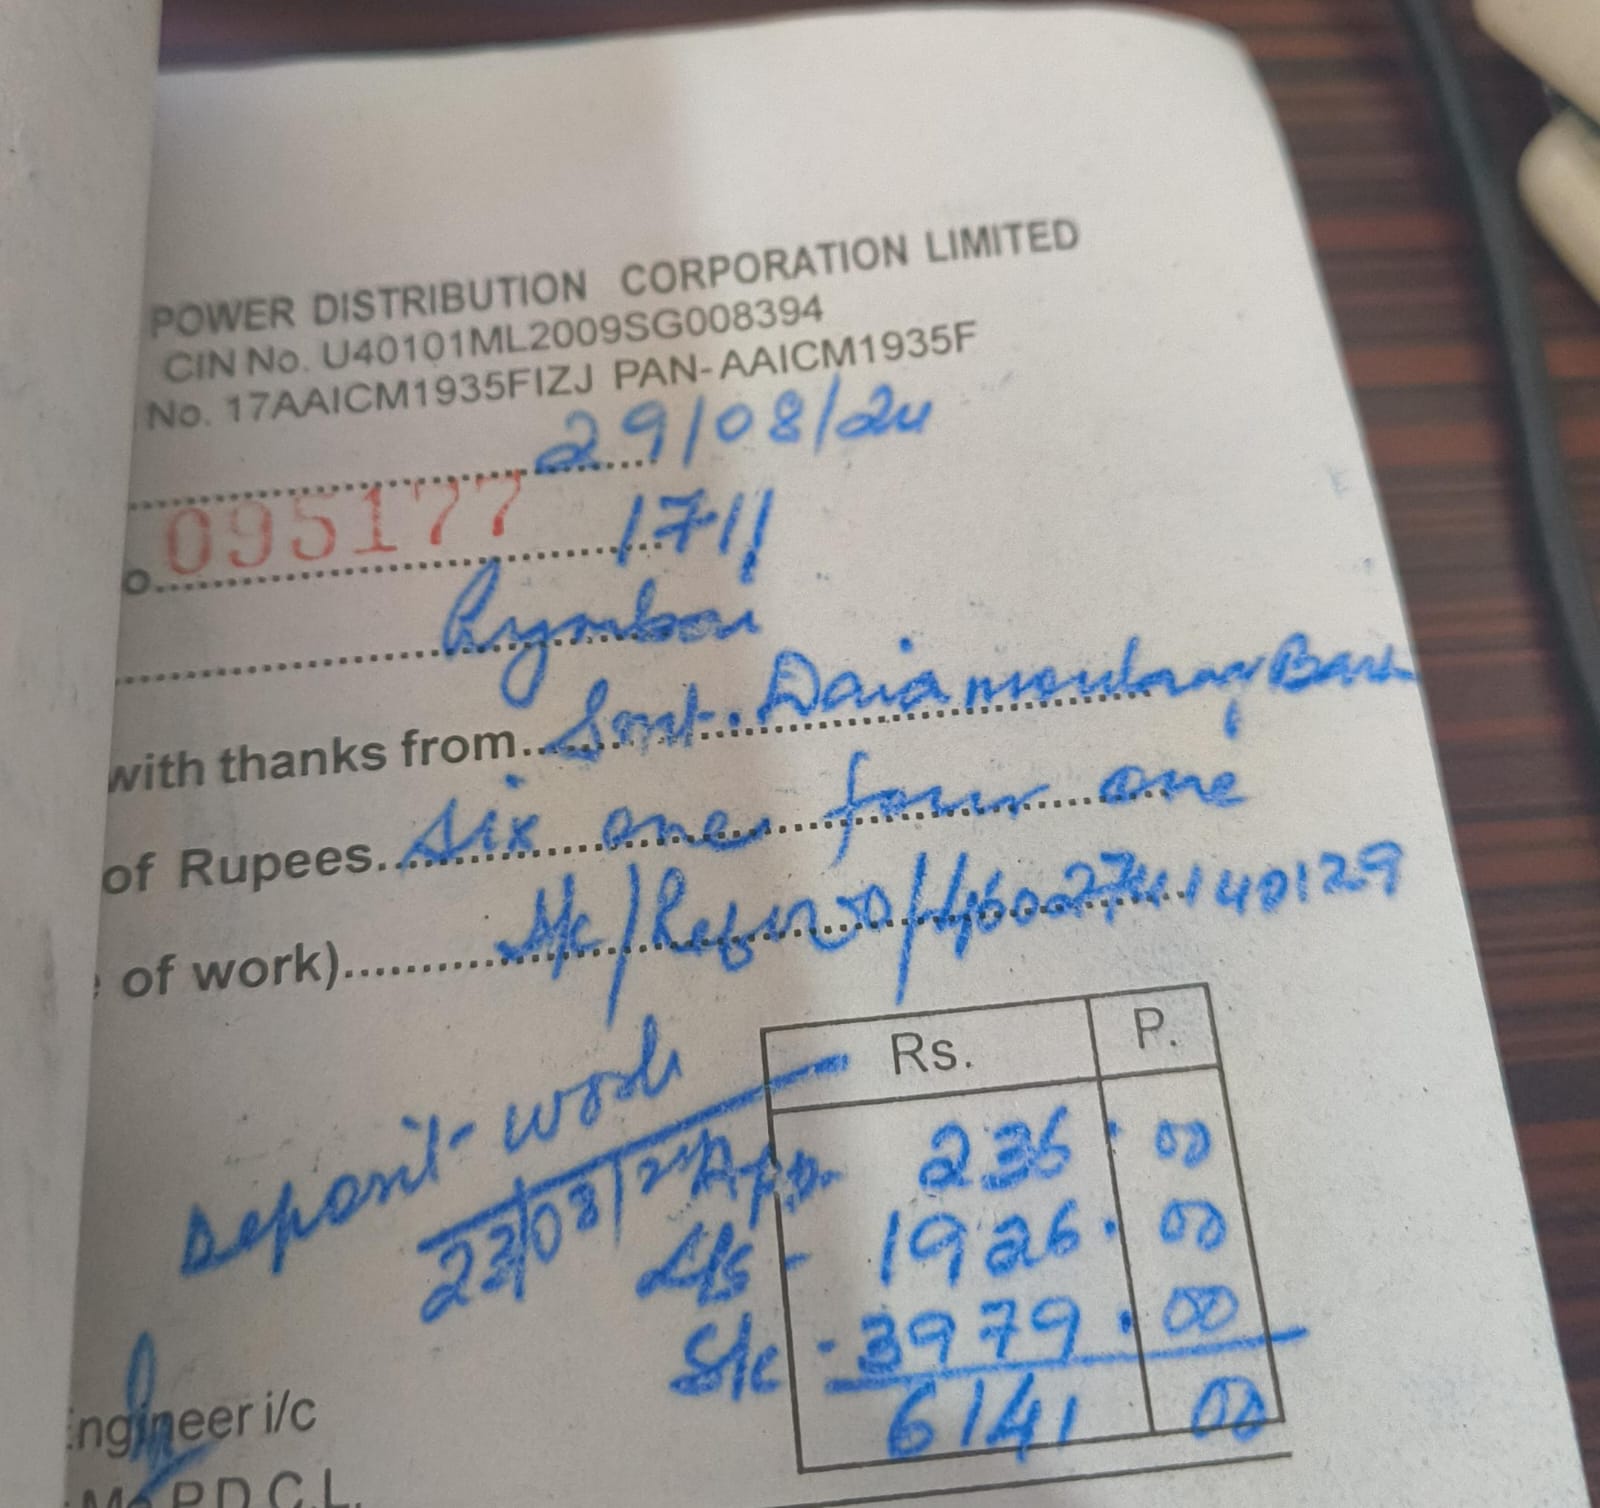 POWER DISTRIBUTION CORPORATION LIMITED
CIN No. U40101ML2009SG008394
No. 17AAICM1935FIZJ PAN-AAICM1935F
29/08/24
095177
o. 1711
Rymbai
with thanks from Smt. Daiamonlang Bar
of Rupees Six one four one
of work) A/c/Ref No/
Deposit work
23/08/24
Rs. P.
App. 236.00
L/S - 1926.00
S/c - 3979.00
6141 00
Engineer i/c
Me.P.D.C.L.